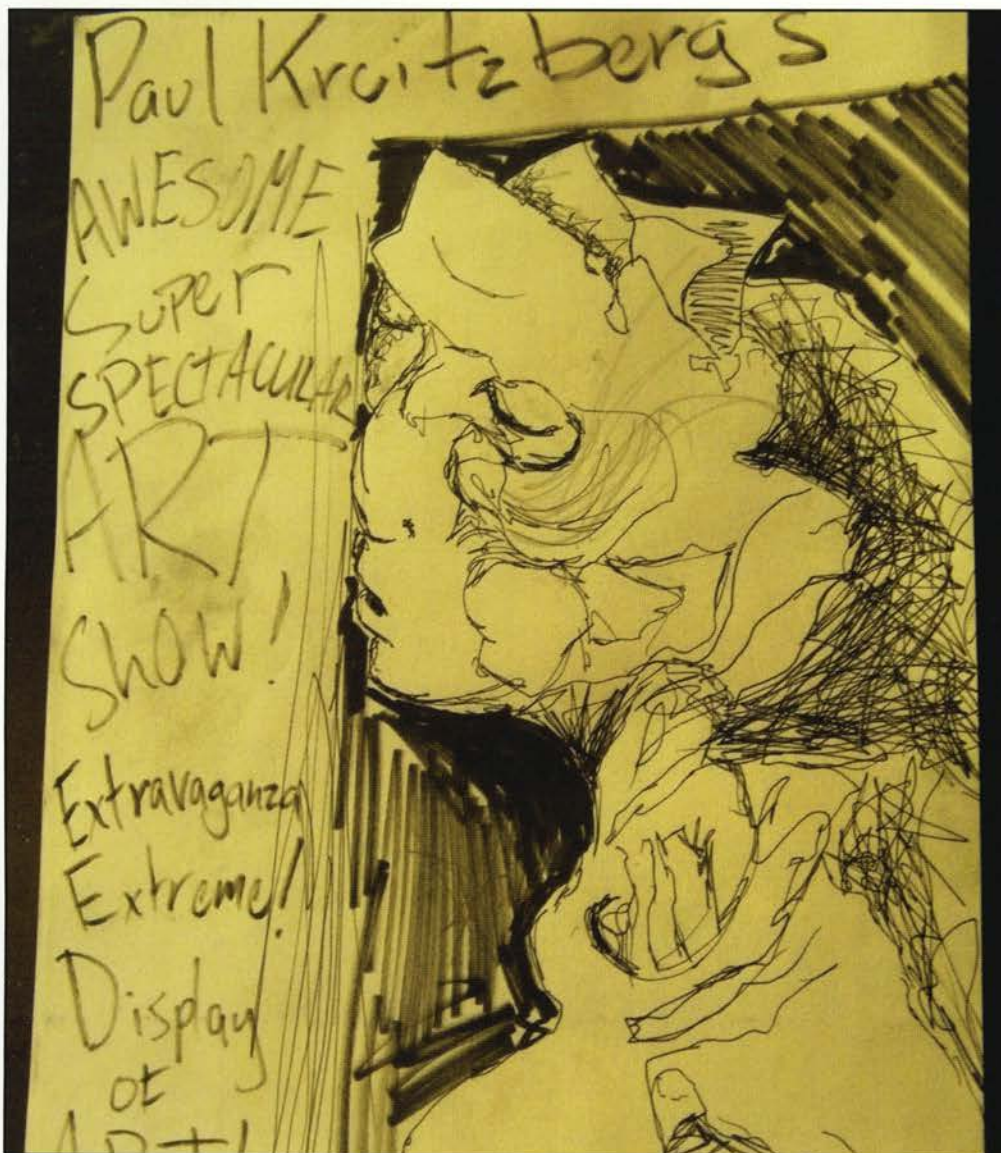 Paul Kreitzbergs
AWESOME
Super
SPECTACULAR
ART
SHOW!
Extravaganza
Extreme!
Display
of
ART!